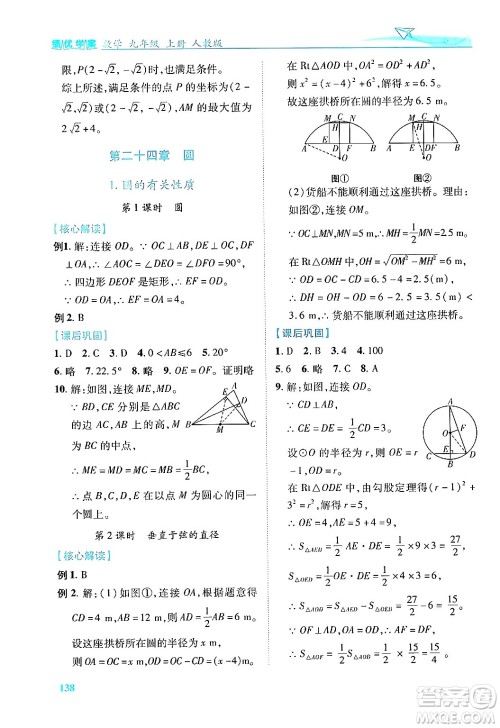 智优学案 数学 九年级 上册 人教版
限,P(2-√2,-√2).
综上所述,满足条件的点 P 的坐标为
(2-√2,√2)或(2-√2,-√2),AM 的最大值为
2√2+4.
第二十四章 圆
1.圆的有关性质
第 1 课时 圆
【核心解读】
例1. 解:连接 OD。∵OC⊥AB,DE⊥OC,DF
⊥OA,∴∠AOC=∠DEO=∠DFO=90°.
∴四边形 DEOF 是矩形,∴EF=OD.
∵OD=OA,∴EF=OA.
例 2. B
【课后巩固】
1. D 2. C 3. D 4. 0<AB≤6 5. 20°
6. 略 7. 22.5° 8. 略 9. OE=OF. 证明略
10. 解:如图,连接 ME,MD.
∵BD,CE 分别是△ABC
的边 AC,AB 上的高,点 M
是 BC 的中点,
∴ME=MD=1/2 BC=MC=MB,
∴点 B,C,D,E 在以点 M 为圆心的同一
个圆上.
第 2 课时 垂直于弦的直径
【核心解读】
例 1. B
例 2. 解:(1)如图①,连接 OA. 根据题意得
CD=4 m,AB=12 m,则 AD=1/2 AB=6 m.
设这座拱桥所在的圆的半径为 x m,
则 OA=OC=x m,OD=OC-CD=(x-4)m.
138
在 Rt△AOD 中,OA²=OD²+AD²,
则 x²=(x-4)²+6²,解得 x=6.5.
故这座拱桥所在圆的半径为 6.5 m.
图① 图②
(2)货船不能顺利通过这座拱桥.理由:
如图②,连接 OM.
∵OC⊥MN,MN=5 m,∴MH=1/2 MN=
2.5 m.
在 Rt△OMH 中,OH=√(OM²-MH²)=6 m,
∵OD=OC-CD=6.5-4=2.5 m,
∴DH=OH-OD=6-2.5=3.5 m<
3.6 m,∴货船不能顺利通过这座拱桥.
【课后巩固】
1. D 2. B 3. 2 4. 100
5. 6 6. 略 7. C 8. A
9. 解:如图,连接 OE.
∵CD⊥AB,
∴CD=DE=1/2 CE=3.
设⊙O 的半径为 r,则 OE=r,
∵AD=9,∴OD=9-r.
在 Rt△ODE 中,由勾股定理可得(9-r)²+
3²=r²,解得 r=5,∴OA=OE=5,OD=4,
∴S△AED=1/2 AD·DE=1/2×9×3=27/2,
∴S△AOE=1/2 OA·DE=1/2×5×3=15/2,
∵OF⊥AE,OA=OE,
∴S△AOF=1/2 S△AOE=1/2×15/2=15/4,